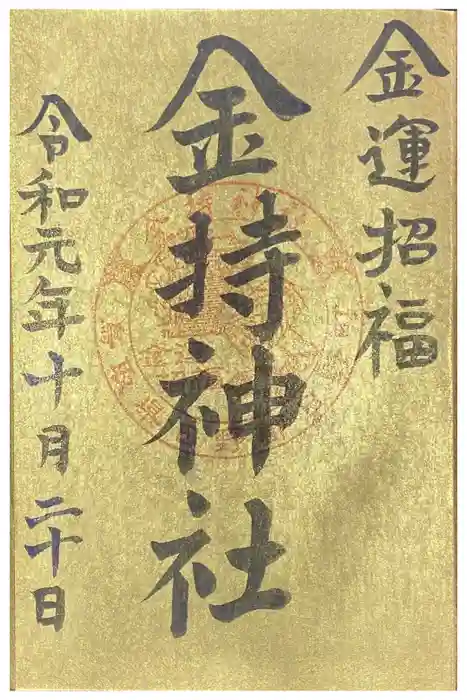 金運招福
金持神社
令和元年十月二十日